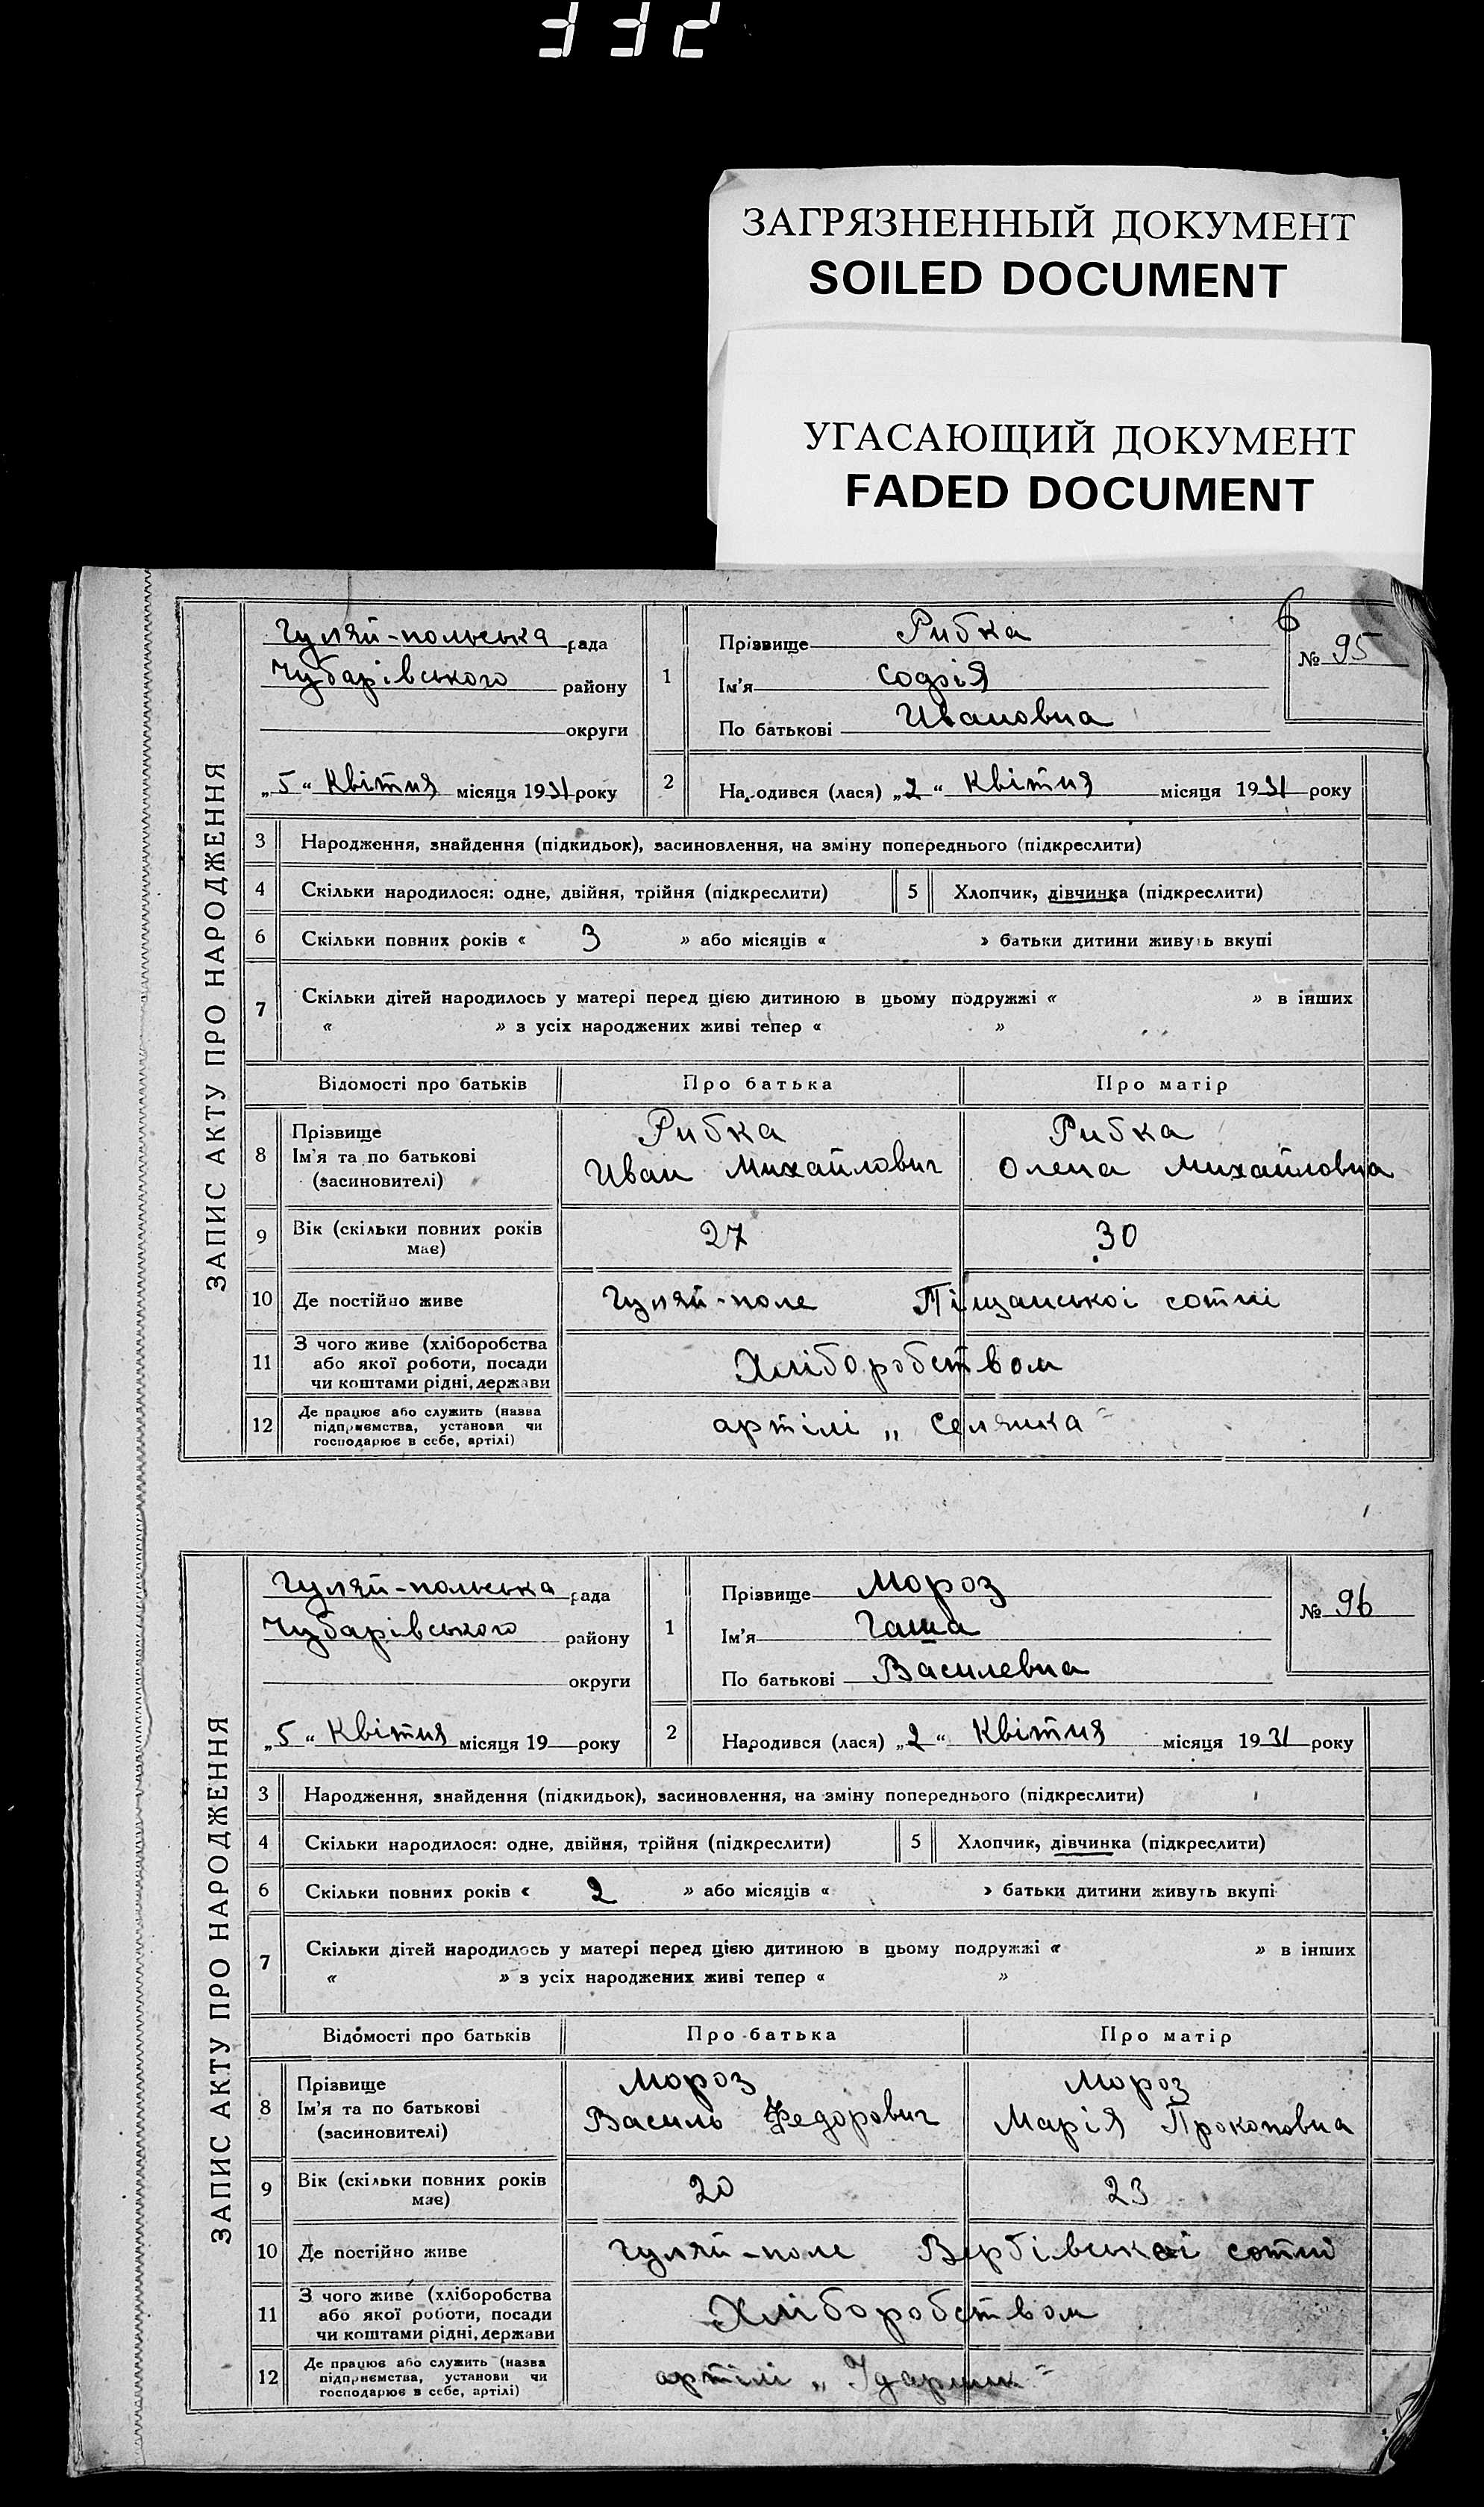 332
ЗАГРЯЗНЕННЫЙ ДОКУМЕНТ
SOILED DOCUMENT
УГАСАЮЩИЙ ДОКУМЕНТ
FADED DOCUMENT
6
ЗАПИС АКТУ ПРО НАРОДЖЕННЯ
Гуляй-польська рада
Чубарівського району
округи
„5“ Квітня місяця 1931 року
1 Прізвище Рибка
Ім'я Софія
По батькові Ивановна
№ 95
2 Народився (лася) „2“ Квітня місяця 1931 року
3 Народження, знайдення (підкидьок), засиновлення, на зміну попереднього (підкреслити)
4 Скільки народилося: одне, двійня, трійня (підкреслити) 5 Хлопчик, дівчинка (підкреслити)
6 Скільки повних років « 3 » або місяців « » батьки дитини живуть вкупі
7 Скільки дітей народилось у матері перед цією дитиною в цьому подружжі « » в інших
« » з усіх народжених живі тепер « »
Відомості про батьків Про батька Про матір
8 Прізвище Рибка Рибка
Ім'я та по батькові Иван Михайлович Олена Михайловна
(засиновителі)
9 Вік (скільки повних років 27 30
має)
10 Де постійно живе Гуляй-поле Піщанської сотні
11 З чого живе (хліборобства
або якої роботи, посади Хліборобством
чи коштами рідні, держави
12 Де працює або служить (назва
підприємства, установи чи артілі „Селянка“
господарює в себе, артілі)
ЗАПИС АКТУ ПРО НАРОДЖЕННЯ
Гуляй-польська рада
Чубарівського району
округи
„5“ Квітня місяця 19 року
1 Прізвище Мороз
Ім'я Гаша
По батькові Василевна
№ 96
2 Народився (лася) „2“ Квітня місяця 1931 року
3 Народження, знайдення (підкидьок), засиновлення, на зміну попереднього (підкреслити)
4 Скільки народилося: одне, двійня, трійня (підкреслити) 5 Хлопчик, дівчинка (підкреслити)
6 Скільки повних років « 2 » або місяців « » батьки дитини живуть вкупі
7 Скільки дітей народилось у матері перед цією дитиною в цьому подружжі « » в інших
« » з усіх народжених живі тепер « »
Відомості про батьків Про батька Про матір
8 Прізвище Мороз Мороз
Ім'я та по батькові Василь Федорович Марія Прокоповна
(засиновителі)
9 Вік (скільки повних років 20 23
має)
10 Де постійно живе Гуляй-поле Вербівської сотні
11 З чого живе (хліборобства
або якої роботи, посади Хліборобством
чи коштами рідні, держави
12 Де працює або служить (назва
підприємства, установи чи артілі „Ударник“
господарює в себе, артілі)